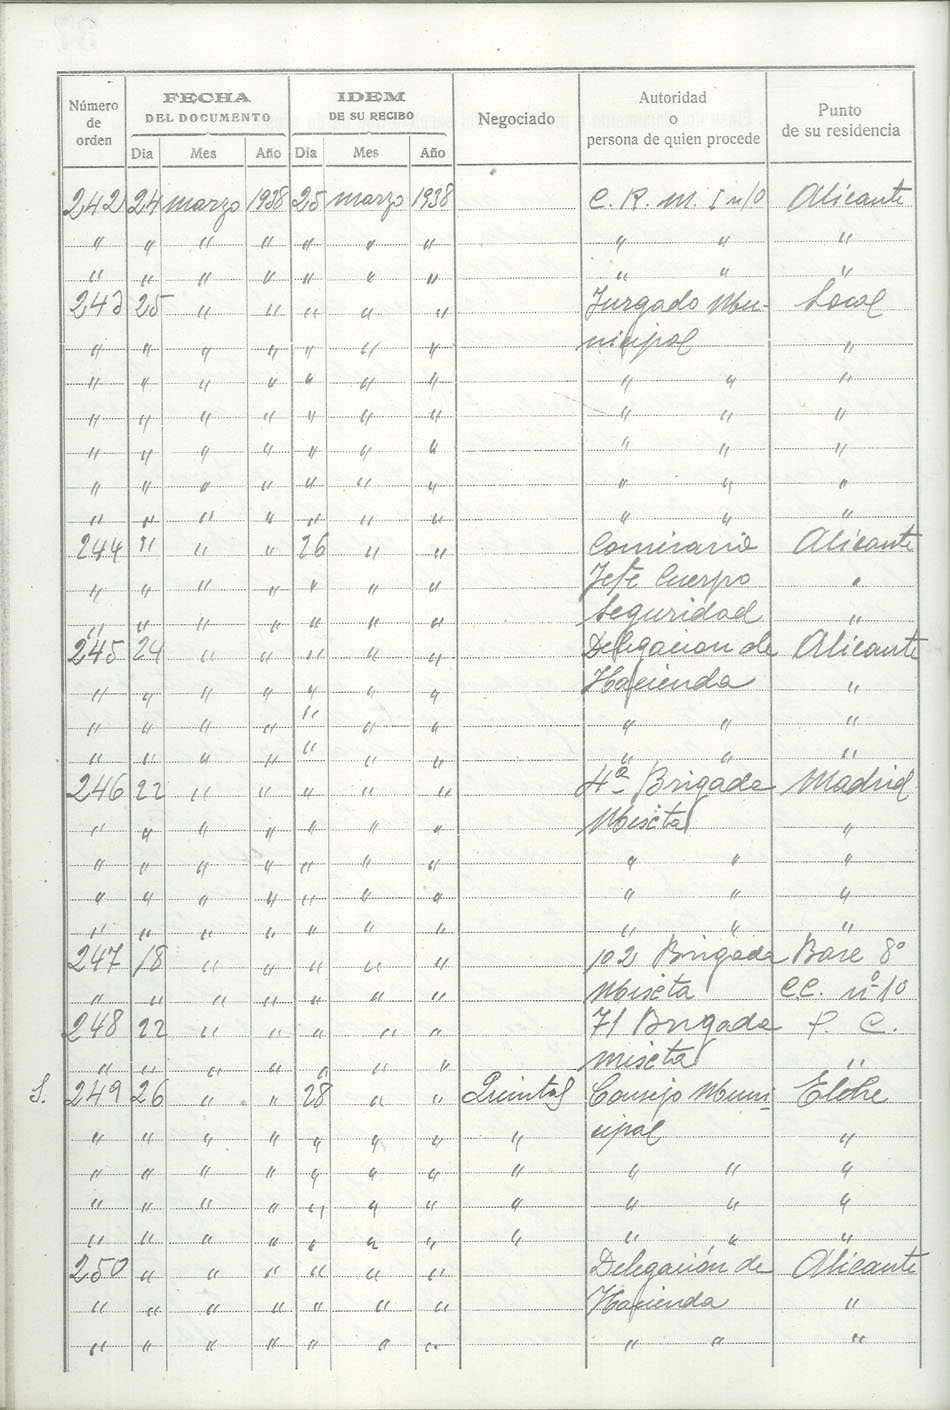 Número de orden | FECHA DEL DOCUMENTO | IDEM DE SU RECIBO | Negociado | Autoridad o persona de quien procede | Punto de su residencia
Dia | Mes | Año | Dia | Mes | Año
242 24 marzo 1938 25 marzo 1938 C. R. M. Alicante
" " " " " " " " " "
" " " " " " " " " "
243 25 " " " " " Juzgado Mu- Local
" " " " " " " nicipal "
" " " " " " " " " "
" " " " " " " " " "
" " " " " " " " " "
" " " " " " " " " "
" " " " " " " " " "
244 " " " 26 " " Comisario Alicante
" " " " " " " Jefe Cuerpo "
" " " " " " " Seguridad "
245 24 " " " " " Delegacion de Alicante
" " " " " " " Hacienda "
" " " " " " " " " "
" " " " " " " " " "
246 22 " " " " " 4ª Brigada Madrid
" " " " " " " Mixta "
" " " " " " " " " "
" " " " " " " " " "
" " " " " " " " " "
247 18 " " " " " 102 Brigada Base 8º
" " " " " " " Mixta CC. nº 10
248 22 " " " " " 71 Brigada P. C.
" " " " " " " mixta "
S. 249 26 " " 28 " " Quintas Consejo Muni- Elche
" " " " " " " " cipal "
" " " " " " " " " " "
" " " " " " " " " " "
" " " " " " " " " " "
250 " " " " " " Delegación de Alicante
" " " " " " " Hacienda "
" " " " " " " " " "